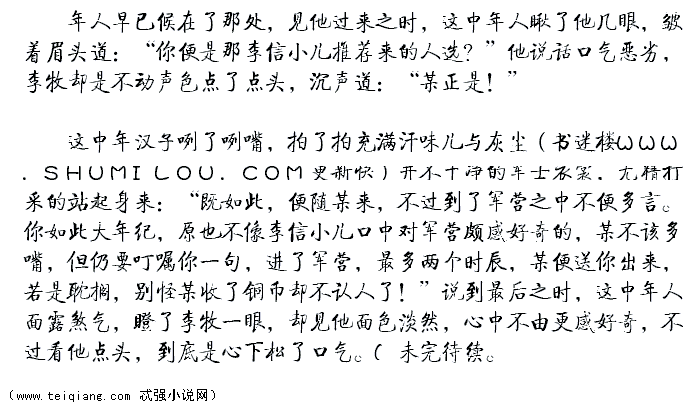 年人早已候在了那处，见他过来之时，这中年人瞅了他几眼，皱
着眉头道：“你便是那李信小儿推荐来的人选？”他说话口气恶劣，
李牧却是不动声色点了点头，沉声道：“某正是！”
这中年汉子咧了咧嘴，拍了拍充满汗味儿与灰尘（书迷楼ωωω
．ＳＨＵＭＩＬＯＵ．ＣＯＭ更新快）并不干净的军士衣裳，无精打
采的站起身来：“既如此，便随某来，不过到了军营之中不便多言。
你如此大年纪，原也不像李信小儿口中对军营颇感好奇的，某不该多
嘴，但仍要叮嘱你一句，进了军营，最多两个时辰，某便送你出来，
若是耽搁，别怪某收了铜币却不认人了！”说到最后之时，这中年人
面露煞气，瞪了李牧一眼，却见他面色淡然，心中不由更感好奇，不
过看他点头，到底是心下松了口气。（ 未完待续。
（www.teiqiang.com 忒强小说网）